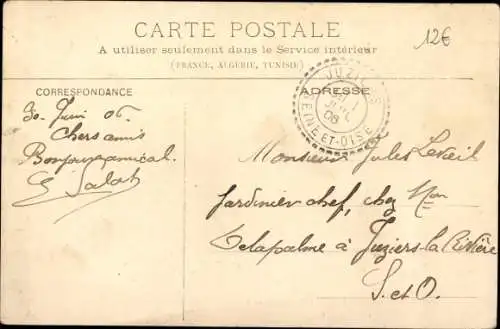 CARTE POSTALE
A utiliser seulement dans le Service intérieur
(FRANCE, ALGERIE, TUNISIE)
12€
CORRESPONDANCE
30 Juin 06
Chers amis
Bonjour amical
ADRESSE
JUZIERS
SEINE-ET-OISE
Monsieur Jules
Jardinier chef, chez Mon
Delapalme à Juziers-la Rivière
S. et O.